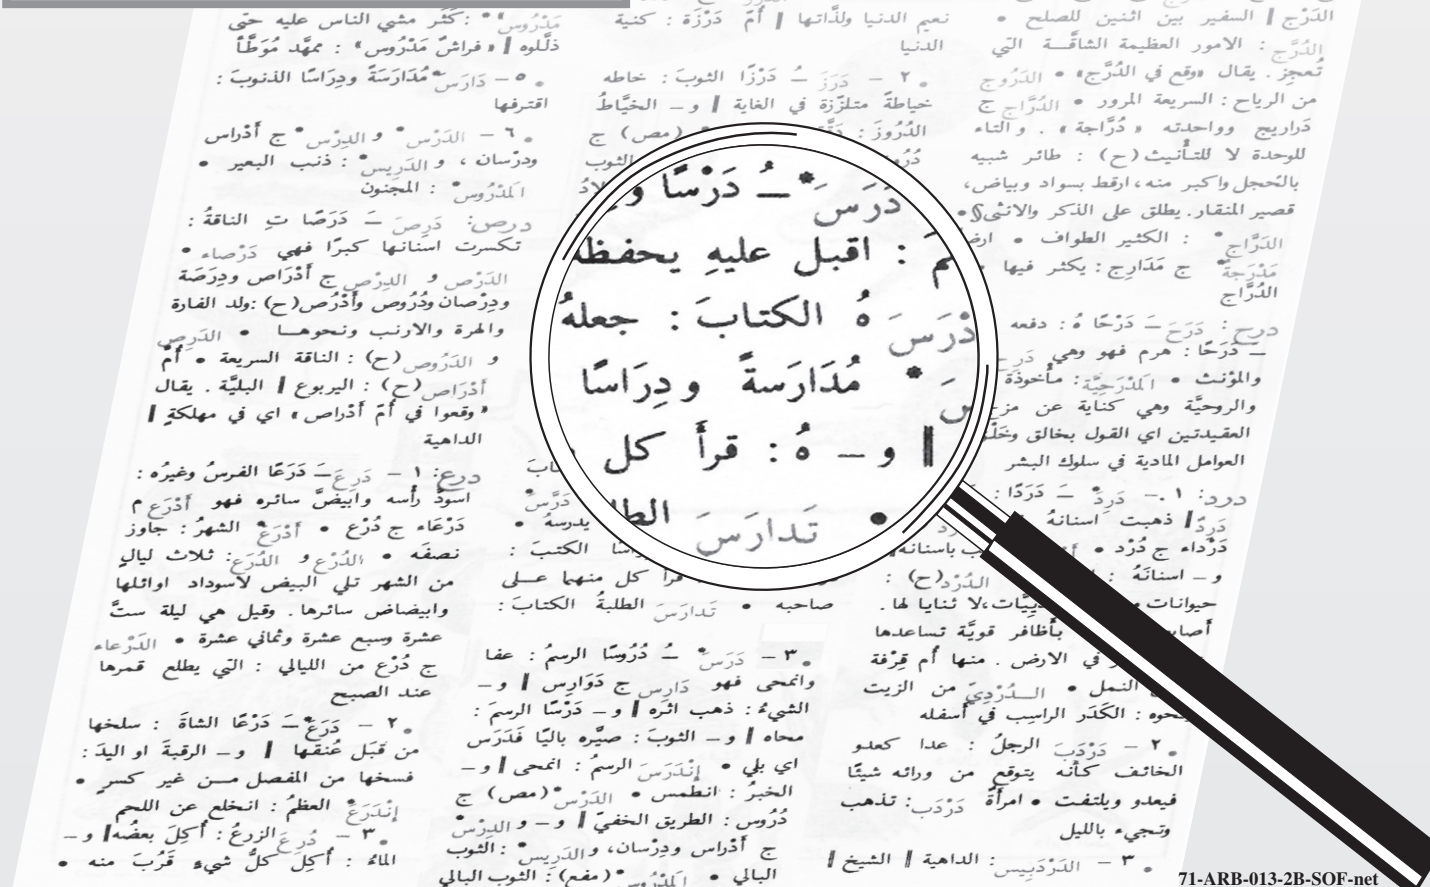 الدَرْج ‖ السفير بين اثنين للصلح •
الدُرَّج : الامور العظيمة الشاقَّـة التي
تُعجِز . يقال «وقع في الدُرَّج» • الدَرُوج
من الرياح : السريعة المرور • الدُرَّاج ج
دَراريج وواحدته « دُرَّاجة » . والتاء
للوحدة لا للتأنيث (ح) : طائر شبيه
بالحَجل واكبر منه ، ارقط بسواد وبياض ،
قصير المنقار . يطلق على الذكر والانثى
الدَرَّاج : الكثير الطواف •
مَدْرَجةٌ ج مَدَارِج : يكثر فيها
الدُرَّاج
درح : دَرَحَ ـَ دَرْحًا هُ : دفعه
ـَ دَرَحًا : هرم فهو وهي
والمؤنث • المَدْرَحِيَّة : مأخوذة
والروحيَّة وهي كناية عن
العقيدتين اي القول بخالق وخَلْق
العوامل المادية في سلوك البشر
درد : ١ . ـ دَرِدَ ـَ دَرَدًا :
دَرِدٌ ‖ ذهبت اسنانهُ
دَرْداء ج دُرْد •
و ـ اسنانَهُ : الدُرْد (ح) :
حيوانات لا ثنايا لها .
بأظافر قويَّة تساعدها
في الارض . منها أم قِرْفة
النمل • الـدُرْدِيّ من الزيت
ونحوه : الكَدَر الراسب في أسفله
٢ ـ دَرْدَبَ الرجلُ : عدا كعدو
الخائف كأنه يتوقع من ورائه شيئًا
فيعدو ويلتفت • امرأةٌ دَرْدَب : تذهب
وتجيء بالليل
٣ ـ الدَرْدَبِيس : الداهية ‖ الشيخ ‖
نعيم الدنيا ولذَّاتها ‖ أمّ دَرْزَة : كنية
الدنيا
٢ ـ دَرَزَ ـُ دَرْزًا الثوبَ : خاطه
خياطةً متلزّزة في الغاية ‖ و ـ الخيَّاطُ
الدُرُوزَ : (مص) ج
الثوب
دَرَسَ * ـُ دَرْسًا و
: اقبل عليهِ يحفظه
دَرَسَ هُ الكتابَ : جعلهُ
* مُدَارَسةً ودِرَاسًا
‖ و ـ هُ : قرأَ كل
• تَدارَسَ
دَرَّسَ
يدرسهُ •
الكتبَ :
قرأ كل منهما عـلى
صاحبه • تَدارَسَ الطلبةُ الكتابَ :
٣ ـ دَرَسَ * ـُ دُرُوسًا الرسمُ : عفا
وانمحى فهو دَارِس ج دَوَارِس ‖ و ـ
الشيءُ : ذهب اثره ‖ و ـ دَرْسًا الرسمَ :
محاه ‖ و ـ الثوبَ : صيَّره باليًا فَدَرَس
اي بلي • إنْدَرَسَ الرسمُ : انمحى ‖ و ـ
الخبرُ : انطمس • الدَرْس * (مص) ج
دُرُوس : الطريق الخفيّ ‖ و ـ و الدِرْس *
ج أَدْراس ودِرْسان ، و الدَرِيس * : الثوب
البالي • المَدْرُوس * (مفع) : الثوب البالي
مَدْرُوس * : كَثُر مشي الناس عليه حتى
ذلَّلوه ‖ « فراشٌ مَدْرُوس » : ممهَّد مُوَطَّأ
٥ ـ دَارَسَ * مُدَارَسَةً ودِرَاسًا الذنوبَ :
اقترفها
٦ ـ الدَرْس * و الدِرْس * ج أَدْراس
ودرْسان ، و الدَرِيس * : ذنب البعير •
المَدْرُوس * : المجنون
درص : دَرِصَ ـَ دَرَصًا تِ الناقةُ :
تكسرت اسنانها كبرًا فهي دَرْصاء •
الدَرْص و الدِرْص ج أَدْرَاص ودِرَصَة
ودِرْصان ودُرُوص وأَدْرُص (ح) : ولد الفارة
والهرة والارنب ونحوهـا • الدَرِص
و الدَرُوص (ح) : الناقة السريعة • أُمّ
أَدْرَاص (ح) : اليربوع ‖ البليَّة . يقال
« وقعوا في أُمّ أَدْراص » اي في مهلكةٍ ‖
الداهية
درع : ١ ـ دَرِعَ ـَ دَرَعًا الفرسُ وغيرُه :
اسودّ رأسه وابيضَّ سائره فهو أَدْرَع م
دَرْعَاء ج دُرْع • أَدْرَعَ * الشهرُ : جاوز
نصفَه • الدُرْع و الدُرَع : ثلاث ليالٍ
من الشهر تلي البيض لاسوداد اوائلها
وابيضاض سائرها . وقيل هي ليلة ستَّ
عشرة وسبع عشرة وثماني عشرة • الدَرْعاء
ج دُرْع من الليالي : التي يطلع قمرها
عند الصبح
٢ ـ دَرَعَ * ـَ دَرْعًا الشاةَ : سلخها
من قِبَل عُنقها ‖ و ـ الرقبةَ او اليدَ :
فسخها من المفصل مـن غير كسر •
إنْدَرَعَ العظمُ : انخلع عن اللحم
٣ ـ دُرِعَ الزرعُ : أُكِلَ بعضُه ‖ و ـ
الماءُ : أُكِلَ كلُّ شيءٍ قَرُبَ منه •
71-ARB-013-2B-SOF-net